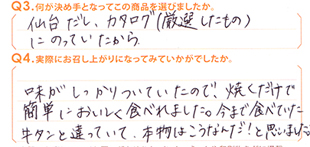 Q3.何が決め手となってこの商品を選びましたか。
仙台だし、カタログ(厳選したもの)
にのっていたから。
Q4.実際にお召し上がりになってみていかがでしたか。
味がしっかりついていたので、焼くだけで
簡単においしく食べれました。今まで食べていた
牛タンと違っていて、本物はこうなんだ!と思いました。